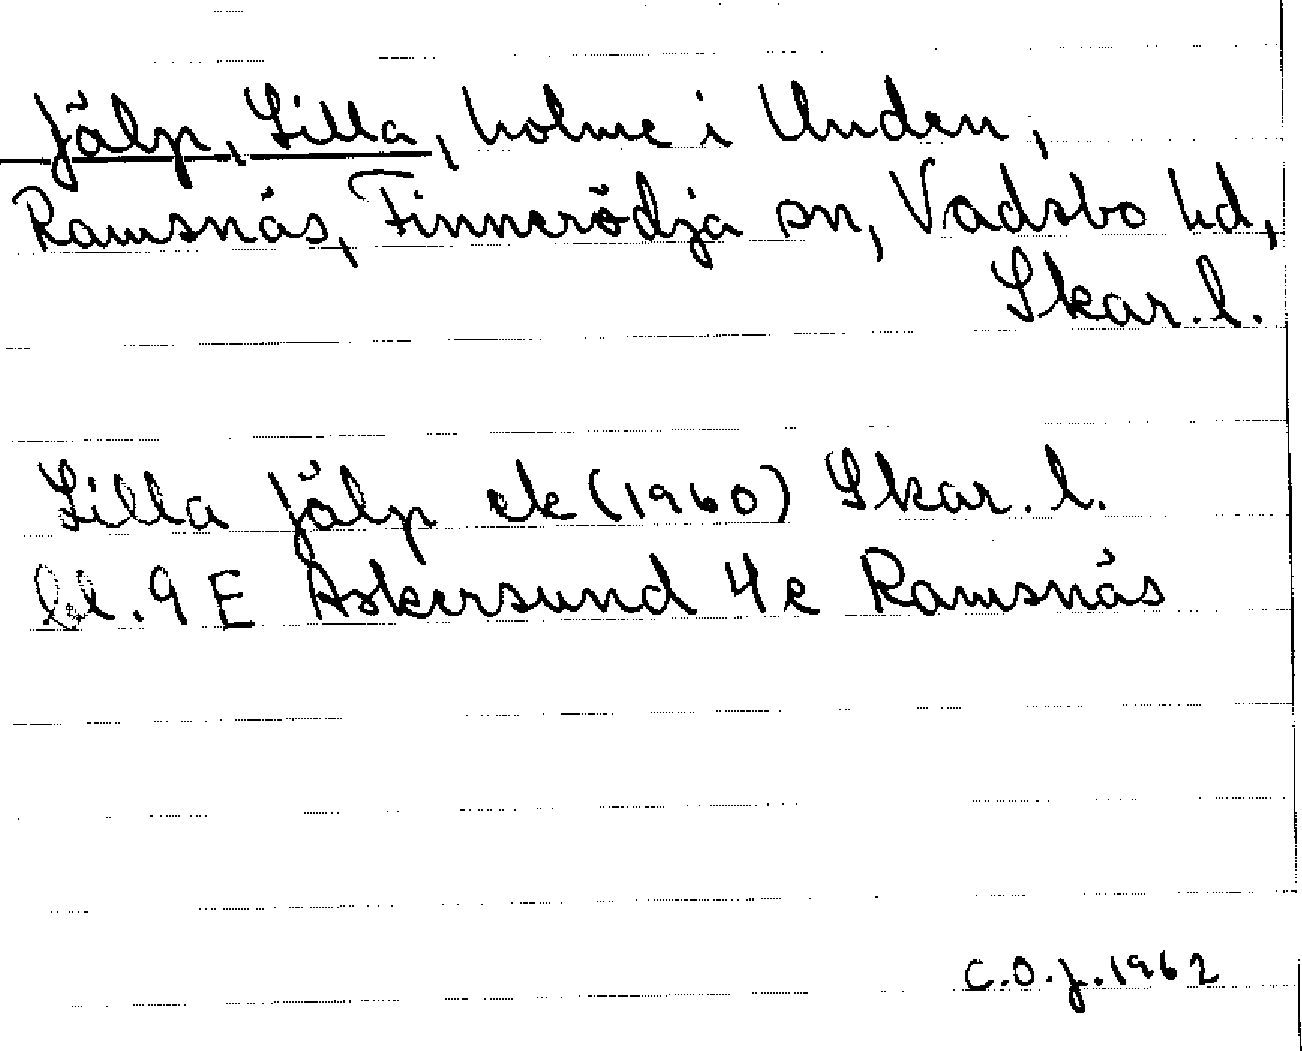 Jälp, Lilla, holme i Unden,
Ramsnäs, Finnerödja sn, Vadsbo hd,
Skar. l.
Lilla Jälp ek (1960) Skar. l.
bl. 9 E Askersund 4 e Ramsnäs
C.O.J. 1962